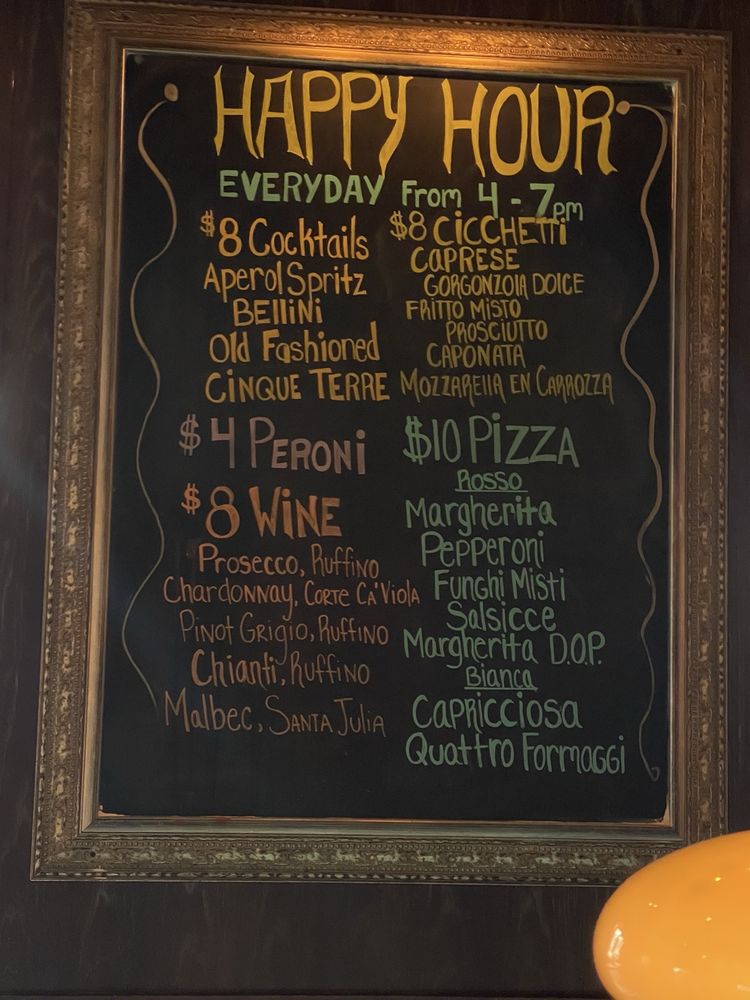 HAPPY HOUR
EVERYDAY From 4 - 7pm
$8 Cocktails
Aperol Spritz
BElliNi
Old Fashioned
CiNQUE TERRE
$4 PERONi
$8 WiNE
Prosecco, Ruffino
Chardonnay, CORTE CA'Viola
Pinot Grigio, Ruffino
Chianti, Ruffino
Malbec, SANTA JuliA
$8 CiCCHETTi
CAPRESE
GORGONZOlA DOlCE
FRITTO MiSTO
PROSCiUTTO
CAPONATA
MOZZAREllA EN CARROZZA
$10 PiZZA
Rosso
Margherita
Pepperoni
Funghi Misti
Salsicce
Margherita D.O.P.
Bianca
CAPRicciosa
Quattro Formaggi